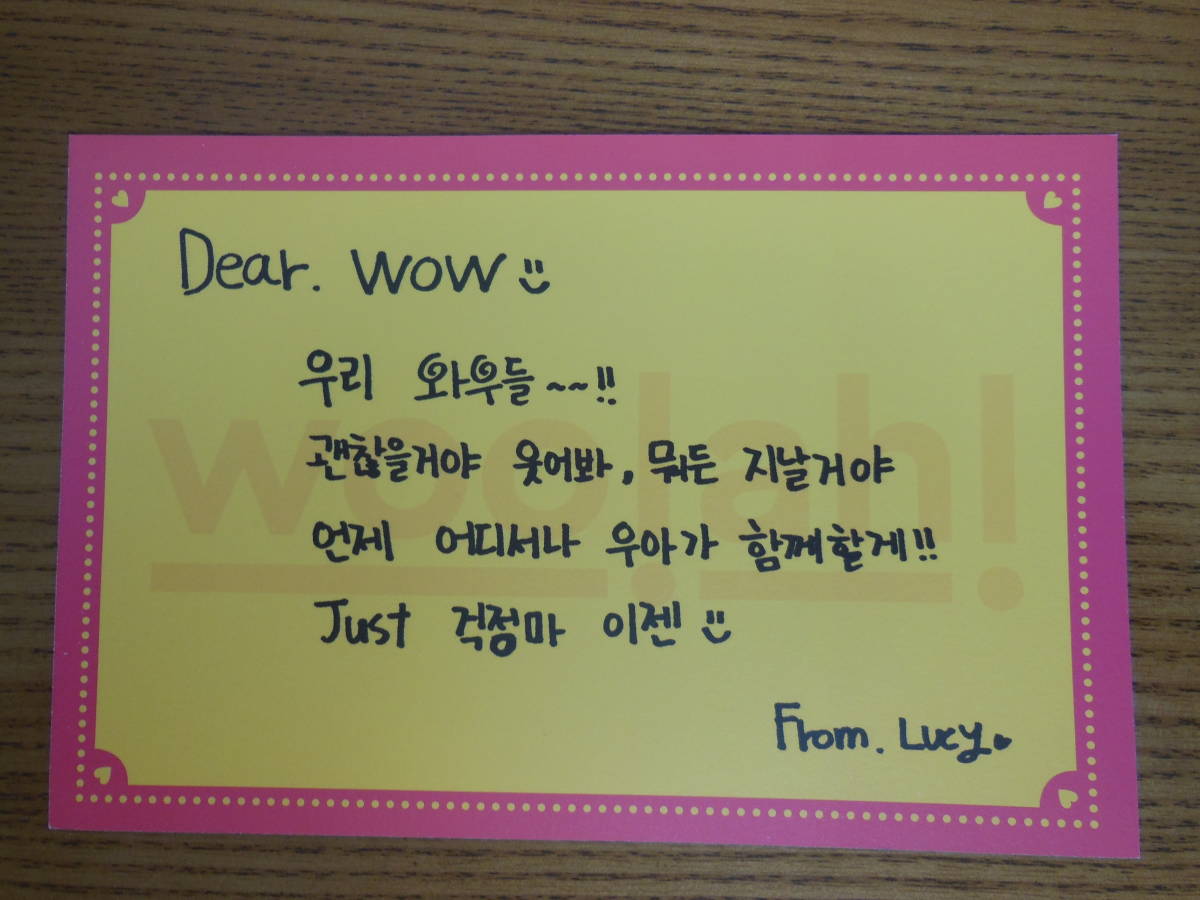 Dear. WOW
우리 와우들~~!!
괜찮을거야 웃어봐, 뭐든 지날거야
언제 어디서나 우아가 함께할게!!
Just 걱정마 이젠
From. Lucy
woo!ah!